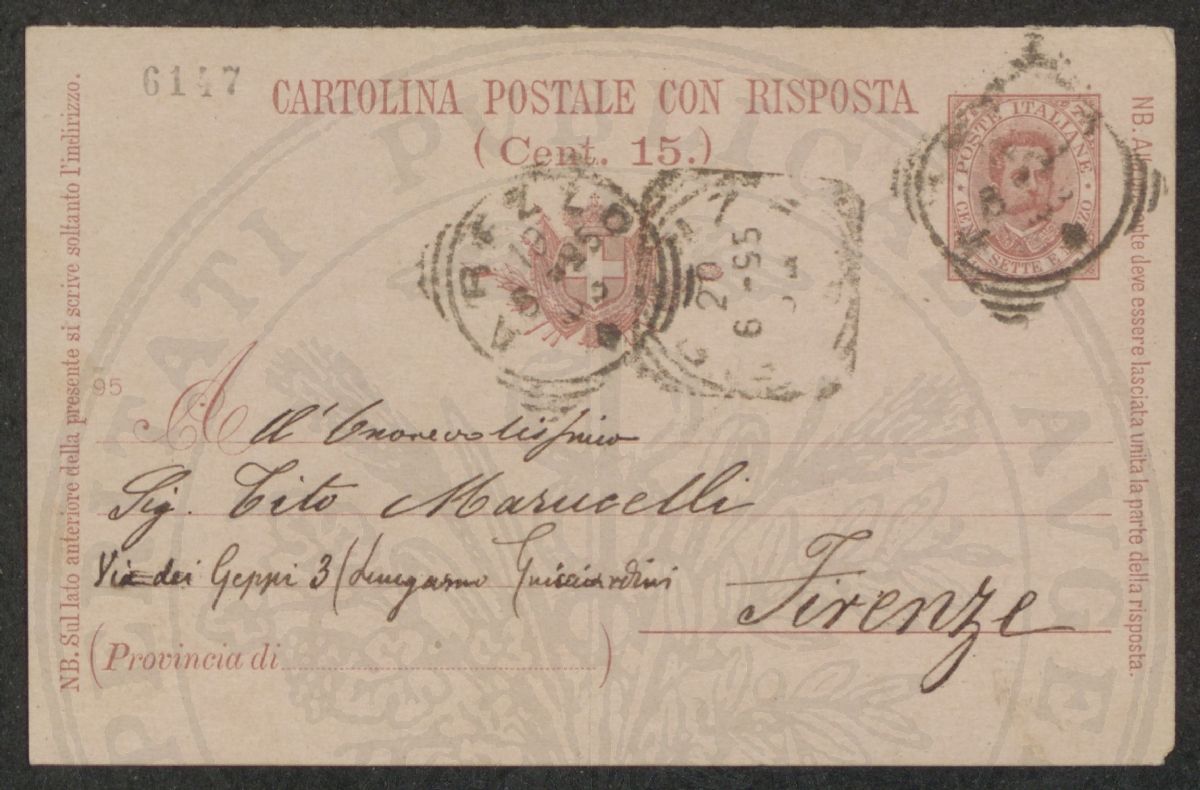 6147
CARTOLINA POSTALE CON RISPOSTA
(Cent. 15.)
POSTE ITALIANE
SETTE E
AREZZO
20
6-55
95
All' Onorevolissimo
Sig. Tito Marucelli
Via dei Geppi 3 (Lungarno Guicciardini
Firenze
(Provincia di )
NB. Sul lato anteriore della presente si scrive soltanto l'indirizzo.
deve essere lasciata unita la parte della risposta.